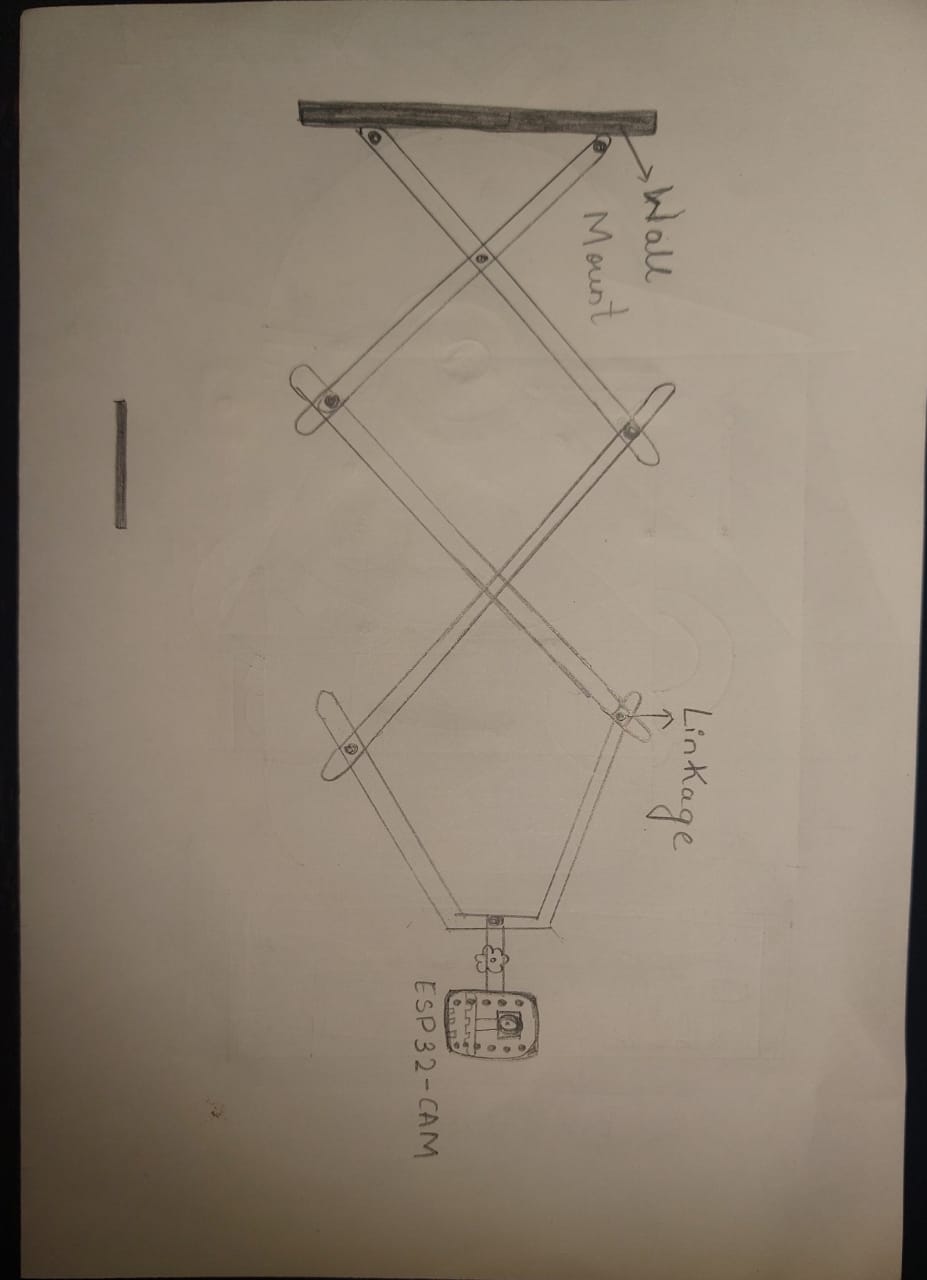 Wall
Mount
Linkage
ESP32-CAM